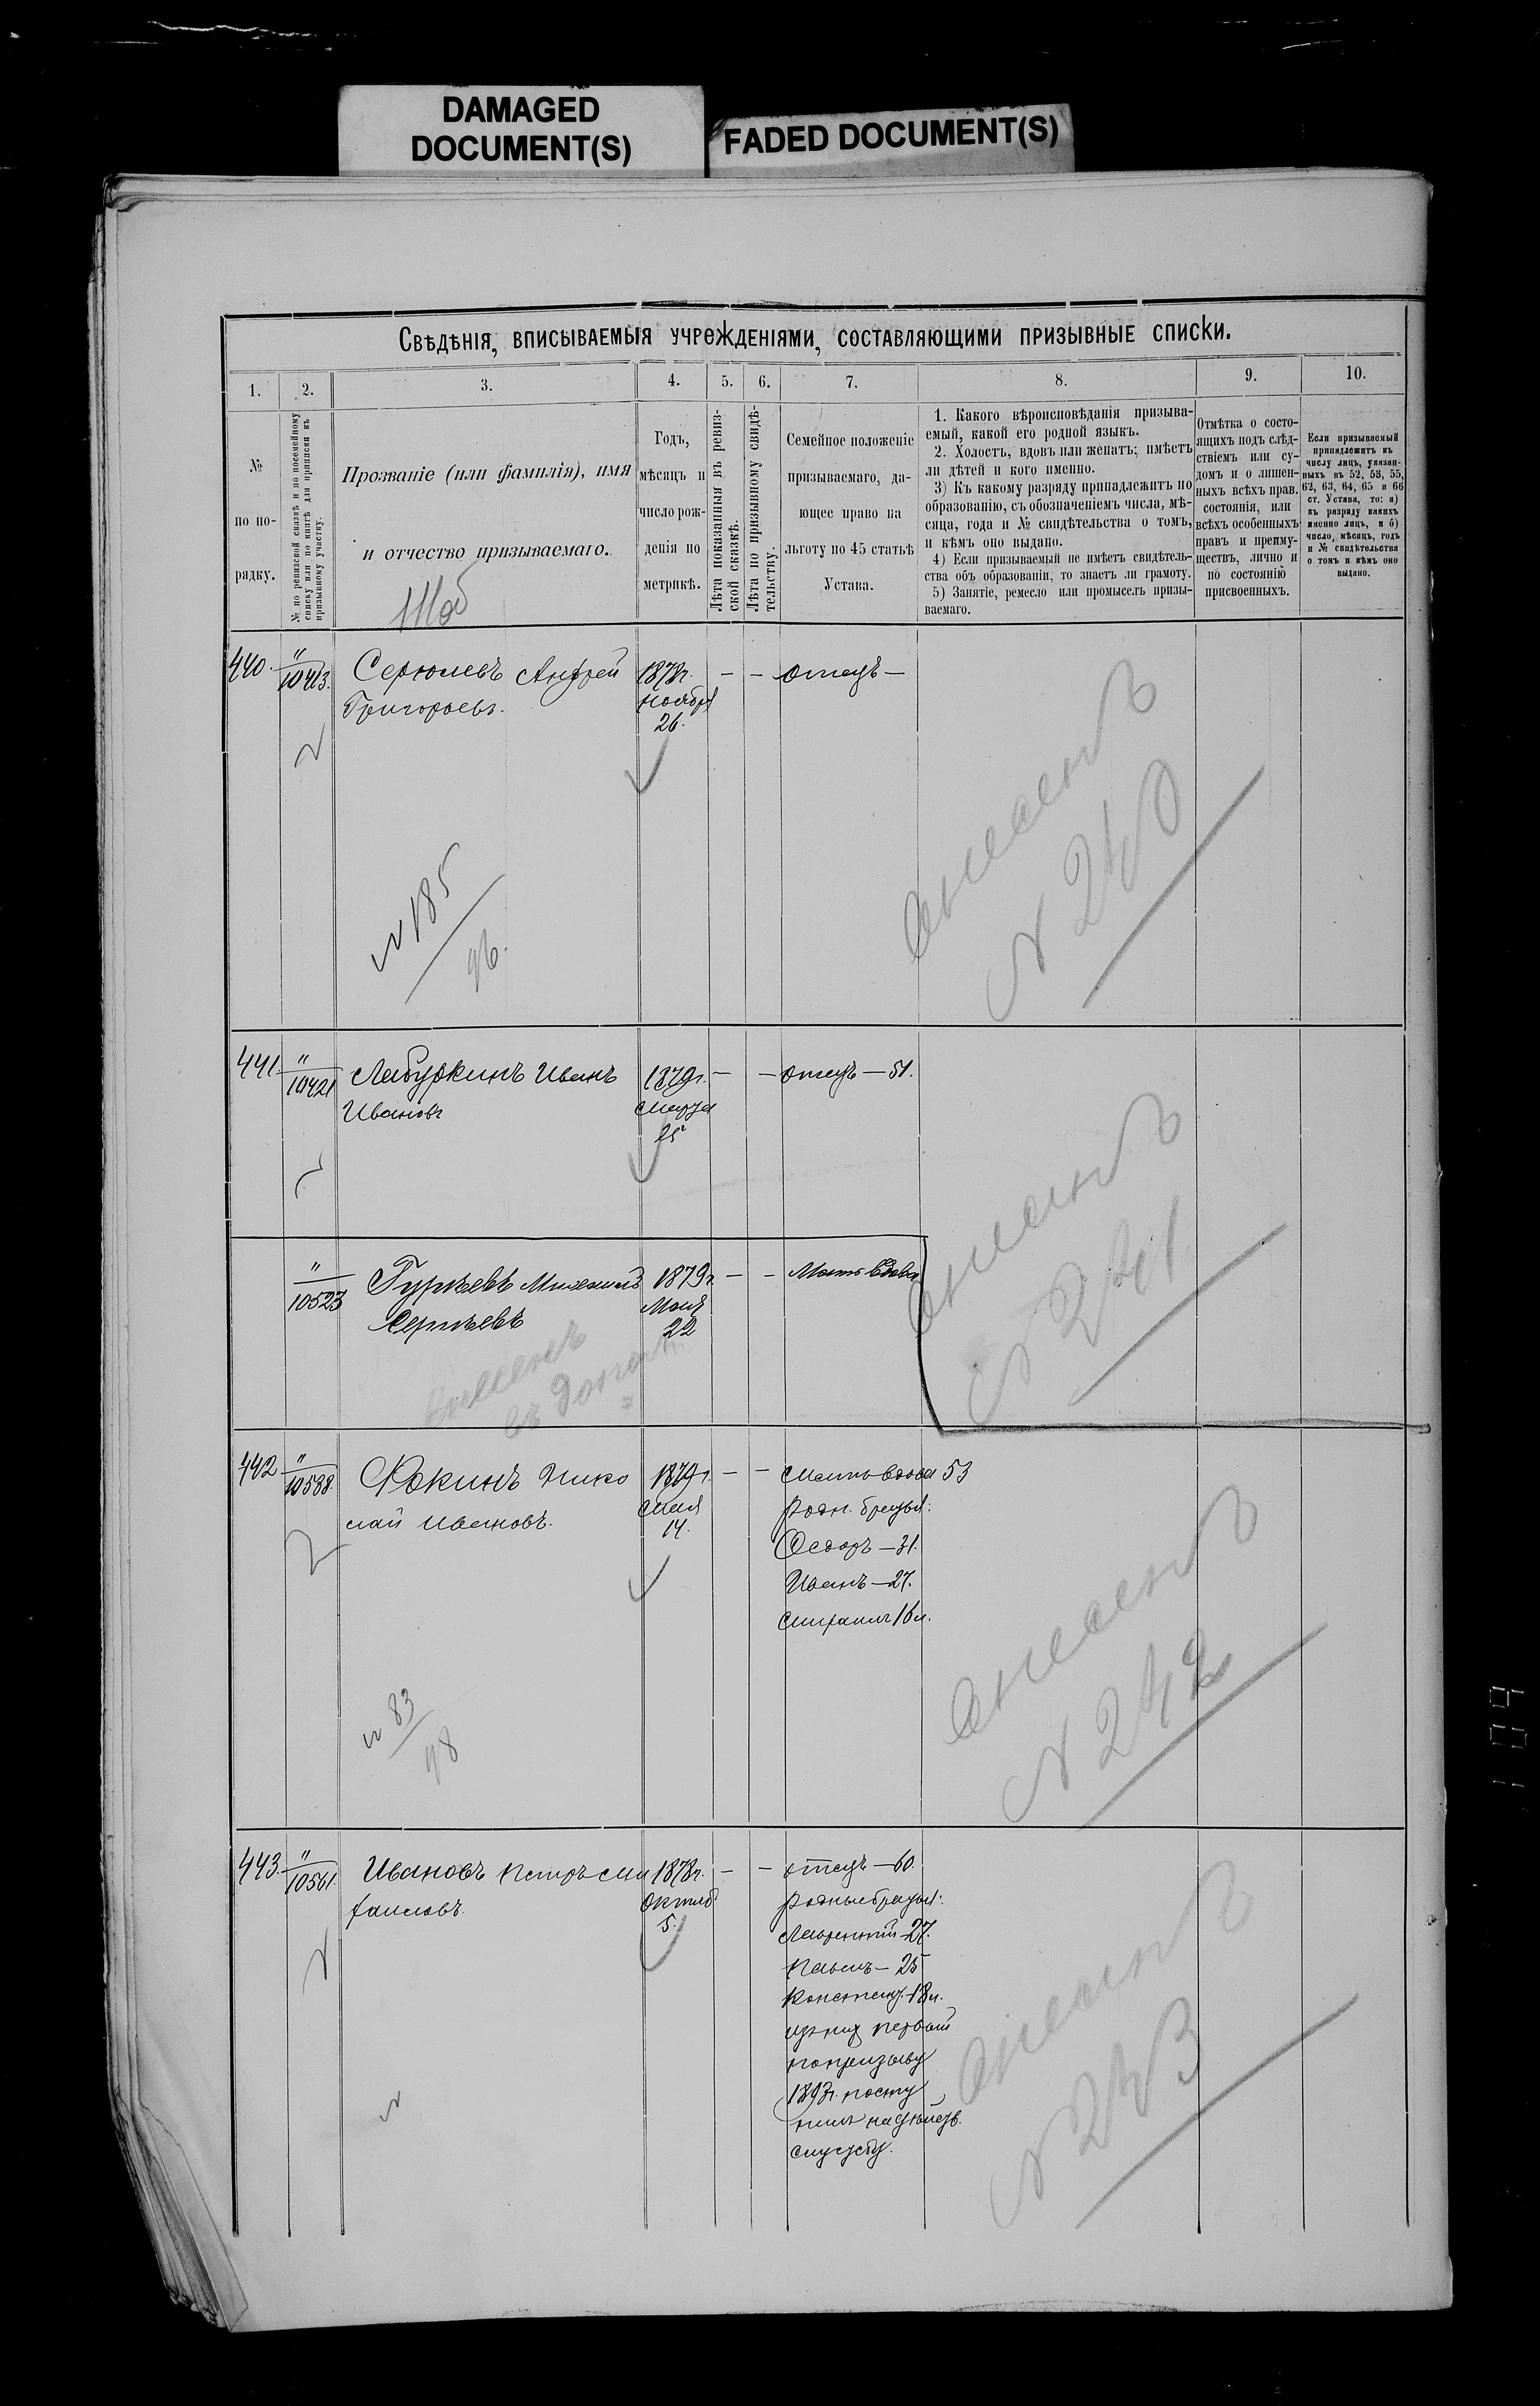 DAMAGED
DOCUMENT(S)
FADED DOCUMENT(S)
Свѣдѣнія, вписываемыя учрежденіями, составляющими призывные списки.
1. 2. 3. 4. 5. 6. 7. 8. 9. 10.
№
по по-
рядку.
№ по ревизской сказкѣ и по посемейному
списку или по книгѣ для приписки къ
призывному участку.
Прозваніе (или фамилія), имя
и отчество призываемаго.
Годъ,
мѣсяцъ и
число рож-
денія по
метрикѣ.
Лѣта показанныя въ ревиз-
ской сказкѣ.
Лѣта по призывному свидѣ-
тельству.
Семейное положеніе
призываемаго, да-
ющее право на
льготу по 45 статьѣ
Устава.
1. Какого вѣроисповѣданія призыва-
емый, какой его родной языкъ.
2. Холостъ, вдовъ или женатъ; имѣетъ
ли дѣтей и кого именно.
3) Къ какому разряду принадлежитъ по
образованію, съ обозначеніемъ числа, мѣ-
сяца, года и № свидѣтельства о томъ,
и кѣмъ оно выдано.
4) Если призываемый не имѣетъ свидѣтель-
ства объ образованіи, то знаетъ ли грамоту.
5) Занятіе, ремесло или промыселъ призы-
ваемаго.
Отмѣтка о состо-
ящихъ подъ слѣд-
ствіемъ или су-
домъ и о лишен-
ныхъ всѣхъ прав.
состоянія, или
всѣхъ особенныхъ
правъ и преиму-
ществъ, лично и
по состоянію
присвоенныхъ.
Если призываемый
принадлежитъ къ
числу лицъ, указан-
ныхъ въ 52, 53, 55,
62, 63, 64, 65 и 66
ст. Устава, то: а)
къ разряду какихъ
именно лицъ, и б)
число, мѣсяцъ, годъ
и № свидѣтельства
о томъ и кѣмъ оно
выдано.
440. " 10413. Андрей 1878г. — — отецъ —
Григорьевъ. ноября
26.
№ 185
96.
N 240
441. " 10421 Лабуркинъ Иванъ 1879г. — — отецъ — 51.
Ивановъ Марта
25
N 241
" 10523 Гурьевъ Михаилъ 1879г. — — Мать вдова
Сергѣевъ Мая
22
442 " 10538. Фокинъ Нико 1879г. — — Мать вдова 53
лай Ивановъ. Мая родн. братья:
14. Ѳедоръ — 31.
Иванъ — 27.
Михаилъ 16 л.
№ 83
98
N 242
443. " 10561. Ивановъ Петръ Ми 1878г. — — отецъ — 60.
хаиловъ. Октяб. родные братья:
5. Лаврентій 27.
Павелъ — 25
Констант. 18 л.
изъ них первый
по призыву
1893г. посту
пилъ на дѣйств.
службу.
N 243
109